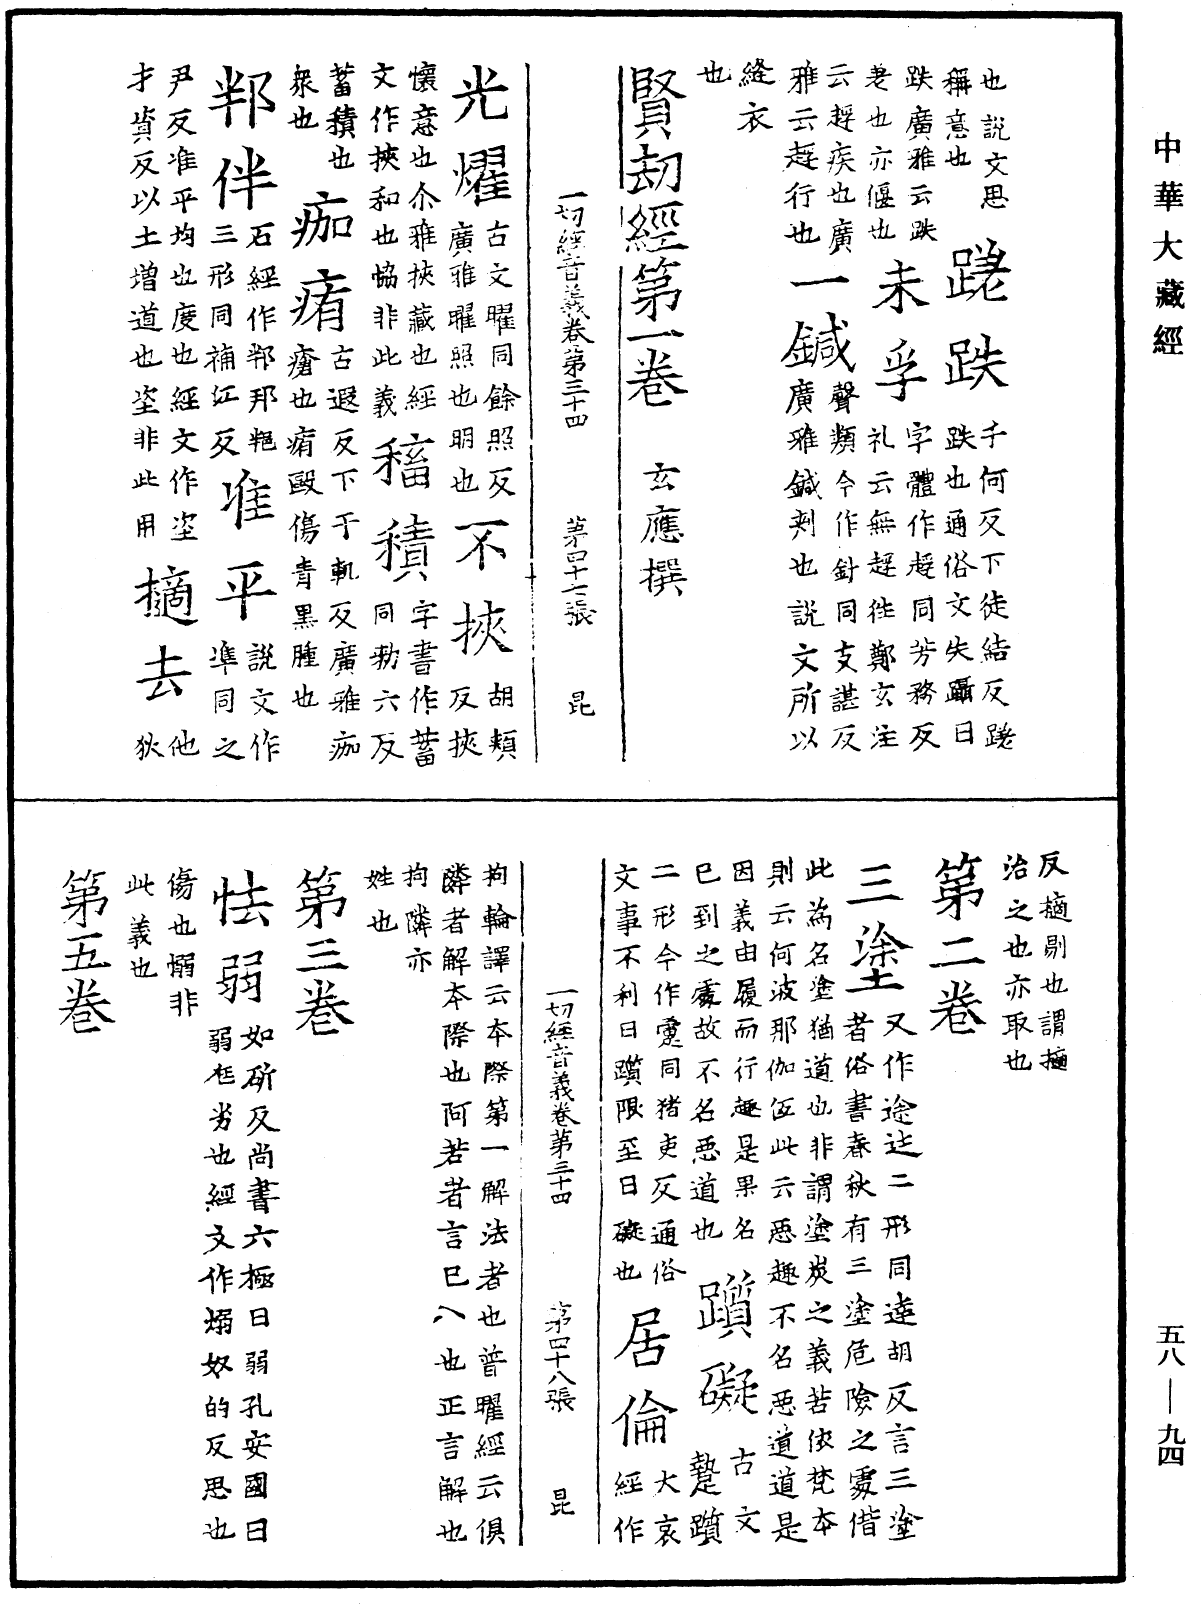 中華大藏經
也說文思
稱意也
蹉跌
千何反下徒結反蹉
跌也通俗文失躡曰
跌廣雅云跌
差也亦偃也
未孚
字體作趕同芳務反
礼云無趕徃鄭玄注
云趕疾也廣
雅云趕行也
一鍼
聲類今作針同支諶反
廣雅鍼刾也說文所以
縫衣
也
賢劫經第一卷 玄應撰
一切經音義卷第三十四 第四十七張 昆
光燿
古文曜同餘照反
廣雅曜照也明也
不挾
胡頰
反挾
懷意也尒雅挾藏也經
文作挾和也恊非此義
稸積
字書作蓄
同勑六反
蓄積也
衆也
痂痏
古遐反下于軌反廣雅痂
瘡也痏毆傷青黑腫也
邦伴
石經作邦邦𦀌
三形同補江反
准平
說文作
準同之
尹反准平均也度也經文作垐
才資反以土增道也垐非此用
擿去
他
狄
反擿剔也謂擿
治之也亦取也
第二卷
三塗
又作途迬二形同達胡反言三塗
者俗書春秋有三塗危險之處偕
此為名塗猶道也非謂塗炭之義若依梵本
則云何波那伽伍此云惡趣不名惡道道是
因義由履而行趣是果名
已到之處故不名惡道也
躓礙
古文
躓
二形今作疐同猪吏反通俗
文事不利曰躓限至曰礙也
居倫
大哀
經作
一切經音義卷第三十四 第四十八張 昆
拘輪譯云本際第一解法者也普曜經云俱
隣者解本際也阿若者言已八也正言解也
拘隣亦
姓也
第三卷
怯弱
如斫反尚書六極曰弱孔安國曰
弱尪劣也經文作㷌奴的反思也
傷也愵非
此義也
第五卷
五八—九四